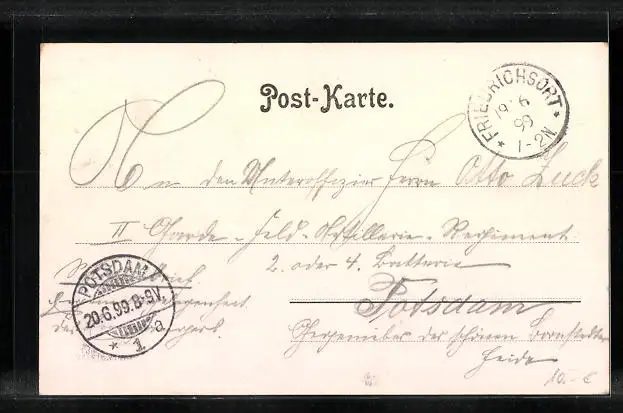 Post-Karte.
FRIEDRICHSORT
19 6
99
1-2N.
An den Unteroffizier Herrn Otto Luck
II Garde-Feld-Artillerie-Regiment
2. oder 4. Batterie
POTSDAM
20.6.99.8-9V.
1 a
Potsdam
Gegenüber der schönen Bornstedter
Heide
10.- €